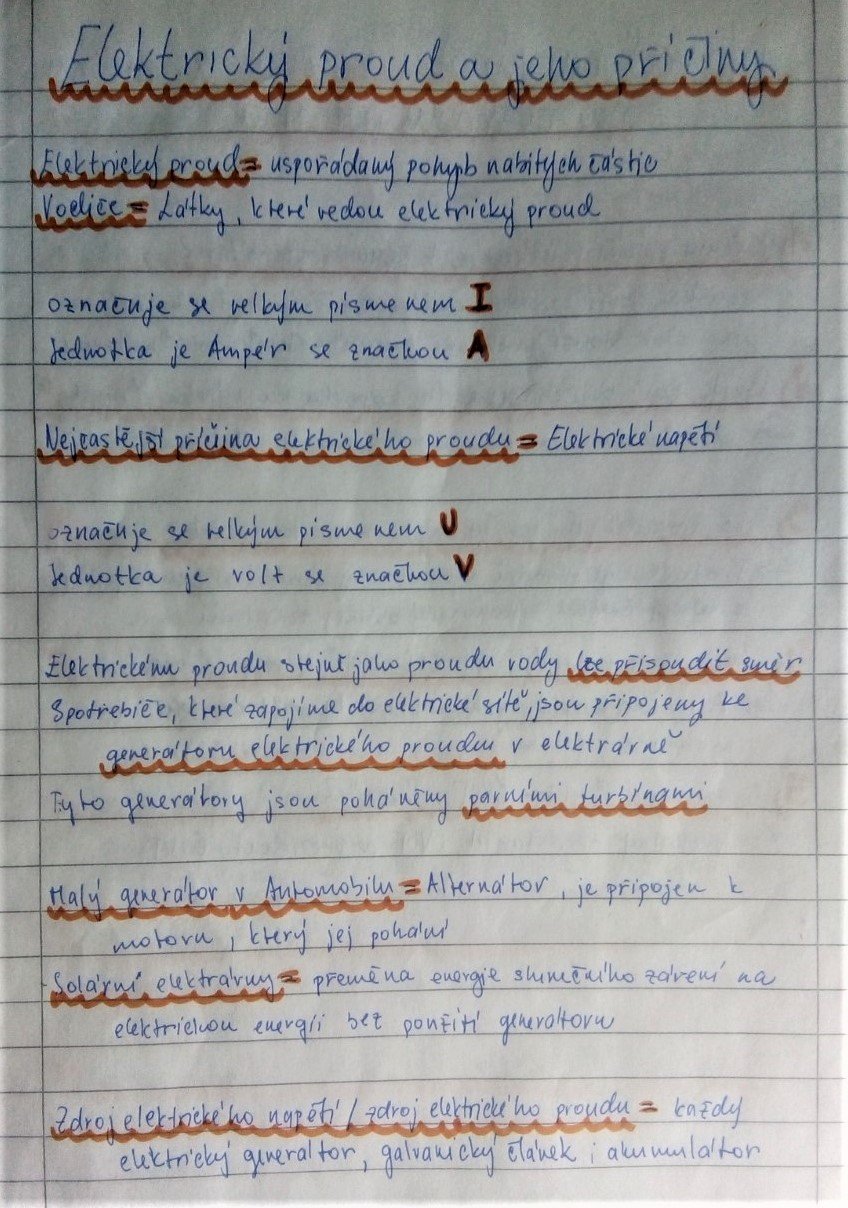 Elektrický proud a jeho příčiny
Elektrický proud = uspořádaný pohyb nabitých částic
Vodiče = Látky, které vedou elektrický proud
označuje se velkým písmenem I
Jednotka je Ampér se značkou A
Nejčastější příčina elektrického proudu = Elektrické napětí
označuje se velkým písmenem U
Jednotka je volt se značkou V
Elektrickému proudu stejně jako proudu vody lze přisoudit směr
Spotřebiče, které zapojíme do elektrické sítě, jsou připojeny ke
generátoru elektrického proudu v elektrárně
Tyto generátory jsou poháněny parními turbínami
Malý generátor v Automobilu = Alternátor, je připojen k
motoru, který jej pohání
Solární elektrárny = přeměna energie slunečního záření na
elektrickou energii bez použití generátoru
Zdroj elektrického napětí / zdroj elektrického proudu = každý
elektrický generátor, galvanický článek i akumulátor